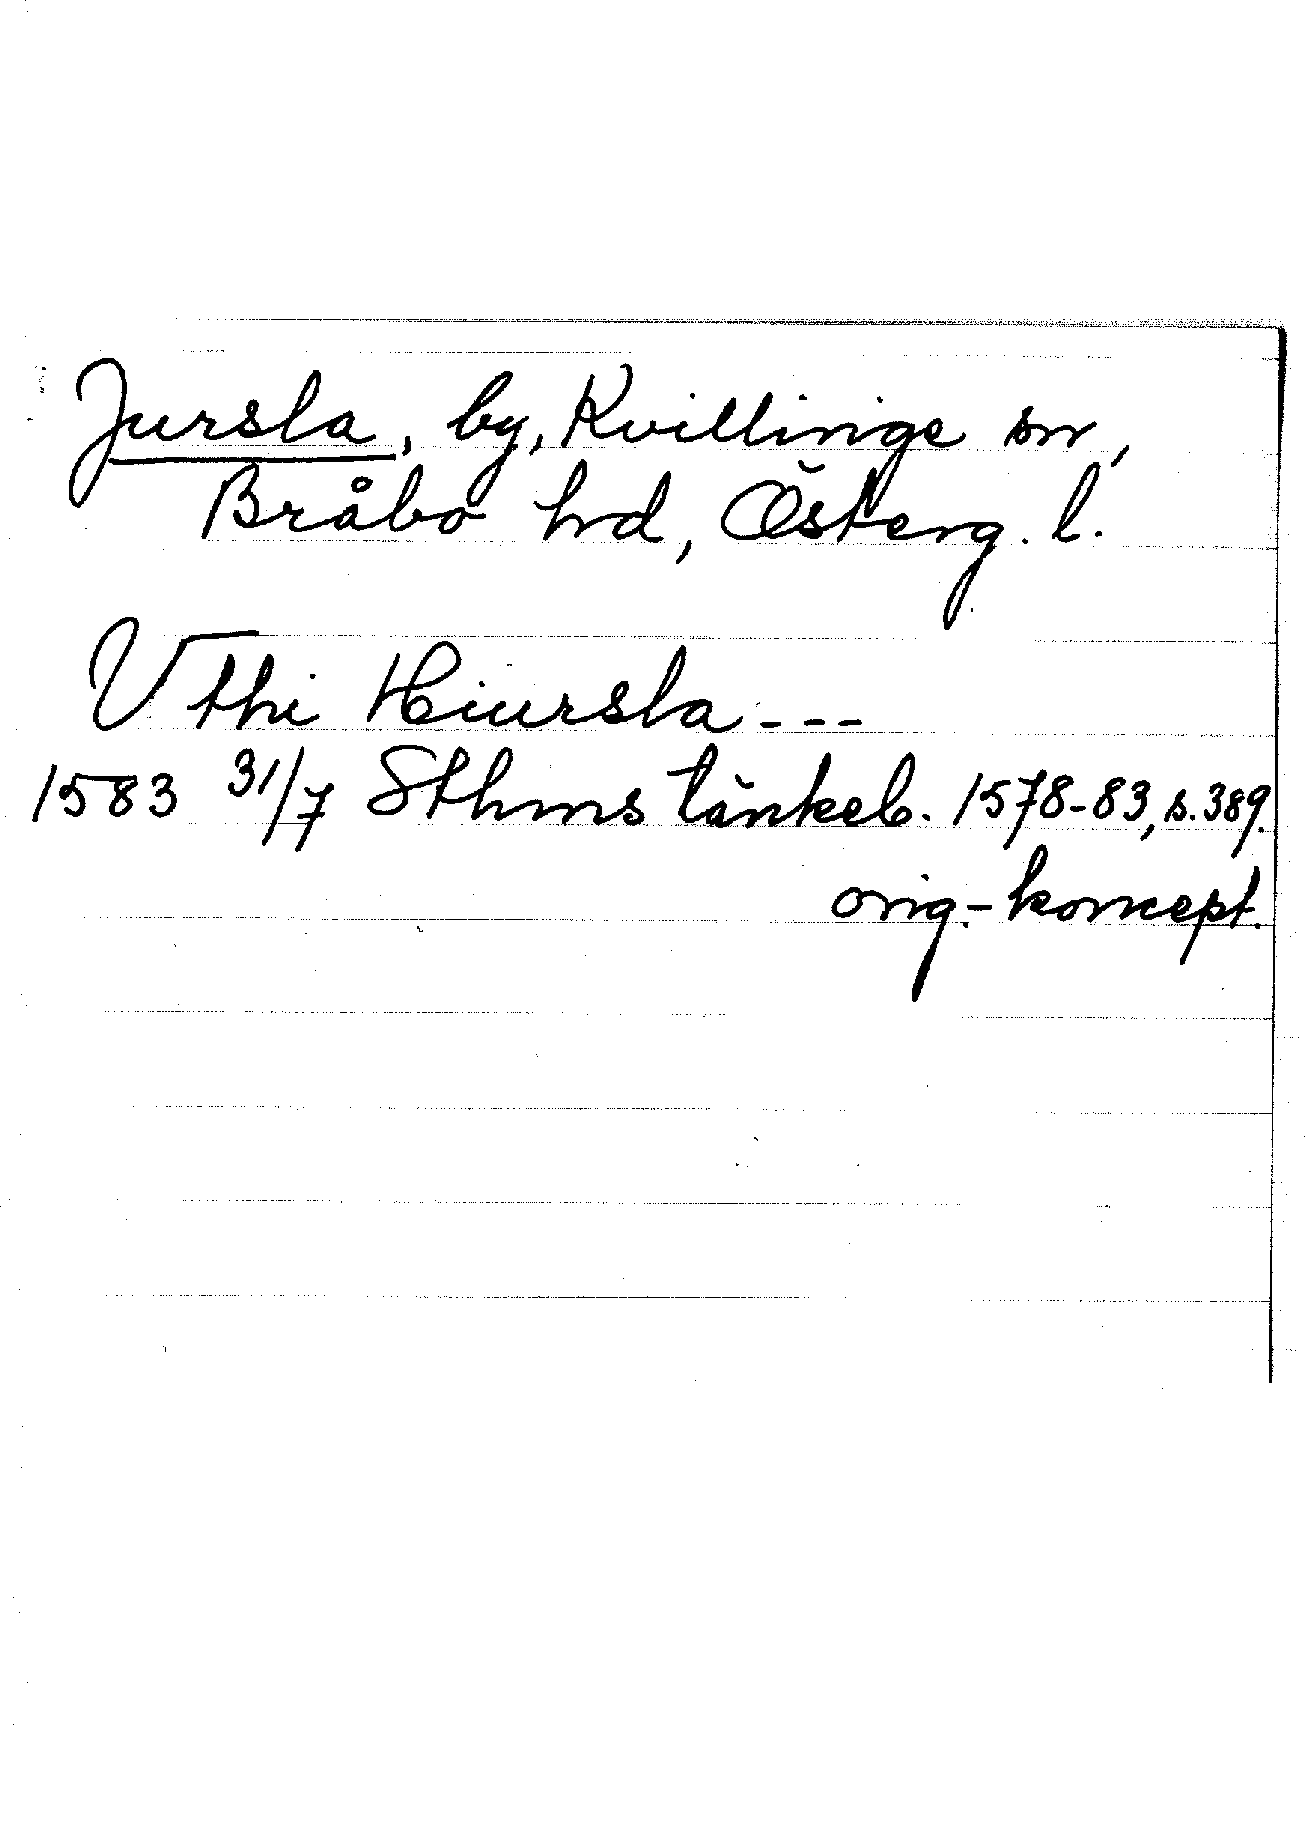 Jursla, by, Kvillinge sn,
Bråbo hd, Österg. l.
Vthi Hiursla ---
1583 31/7 Sthms tänkeb. 1578-83, s. 389.
orig.-koncept.